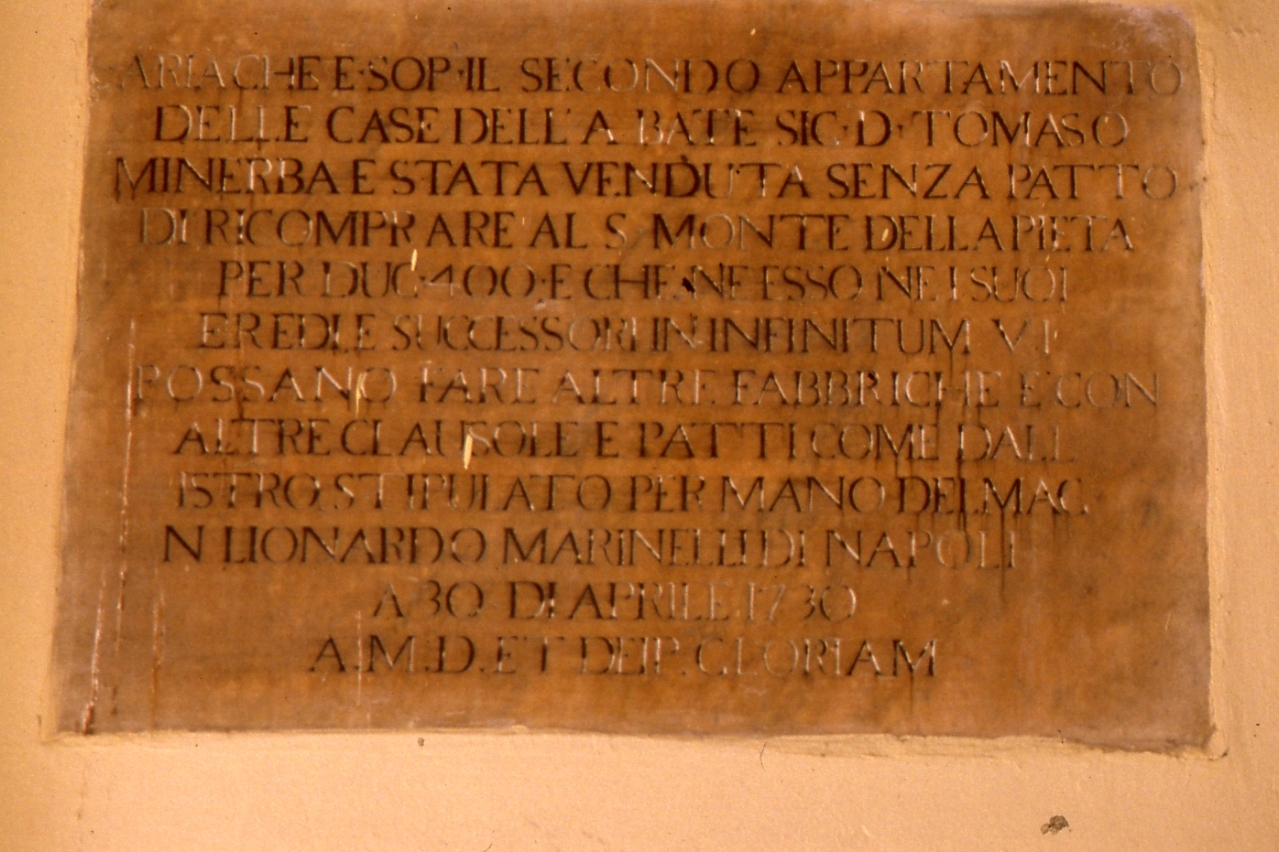 ARIA CHE E·SOP·IL SECONDO APPARTAMENTO
DELLE CASE DELL'A BATE SIG·D·TOMASO
MINERBA E STATA VENDUTA SENZA PATTO
DI RICOMPRARE AL S. MONTE DELLA PIETA
PER DUC·400·E CHE NE ESSO NE I SUOI
EREDI E SUCCESSORI IN INFINITUM VI
POSSANO FARE ALTRE FABBRICHE E CON
ALTRE CLAUSOLE E PATTI COME DALL
ISTRO STIPULATO PER MANO DEL MAG
N LIONARDO MARINELLI DI NAPOLI
A 30 DI APRILE 1730
A.M.D. ET DEIP. GLORIAM